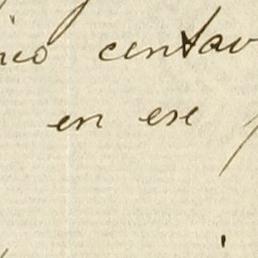 centav
en ese